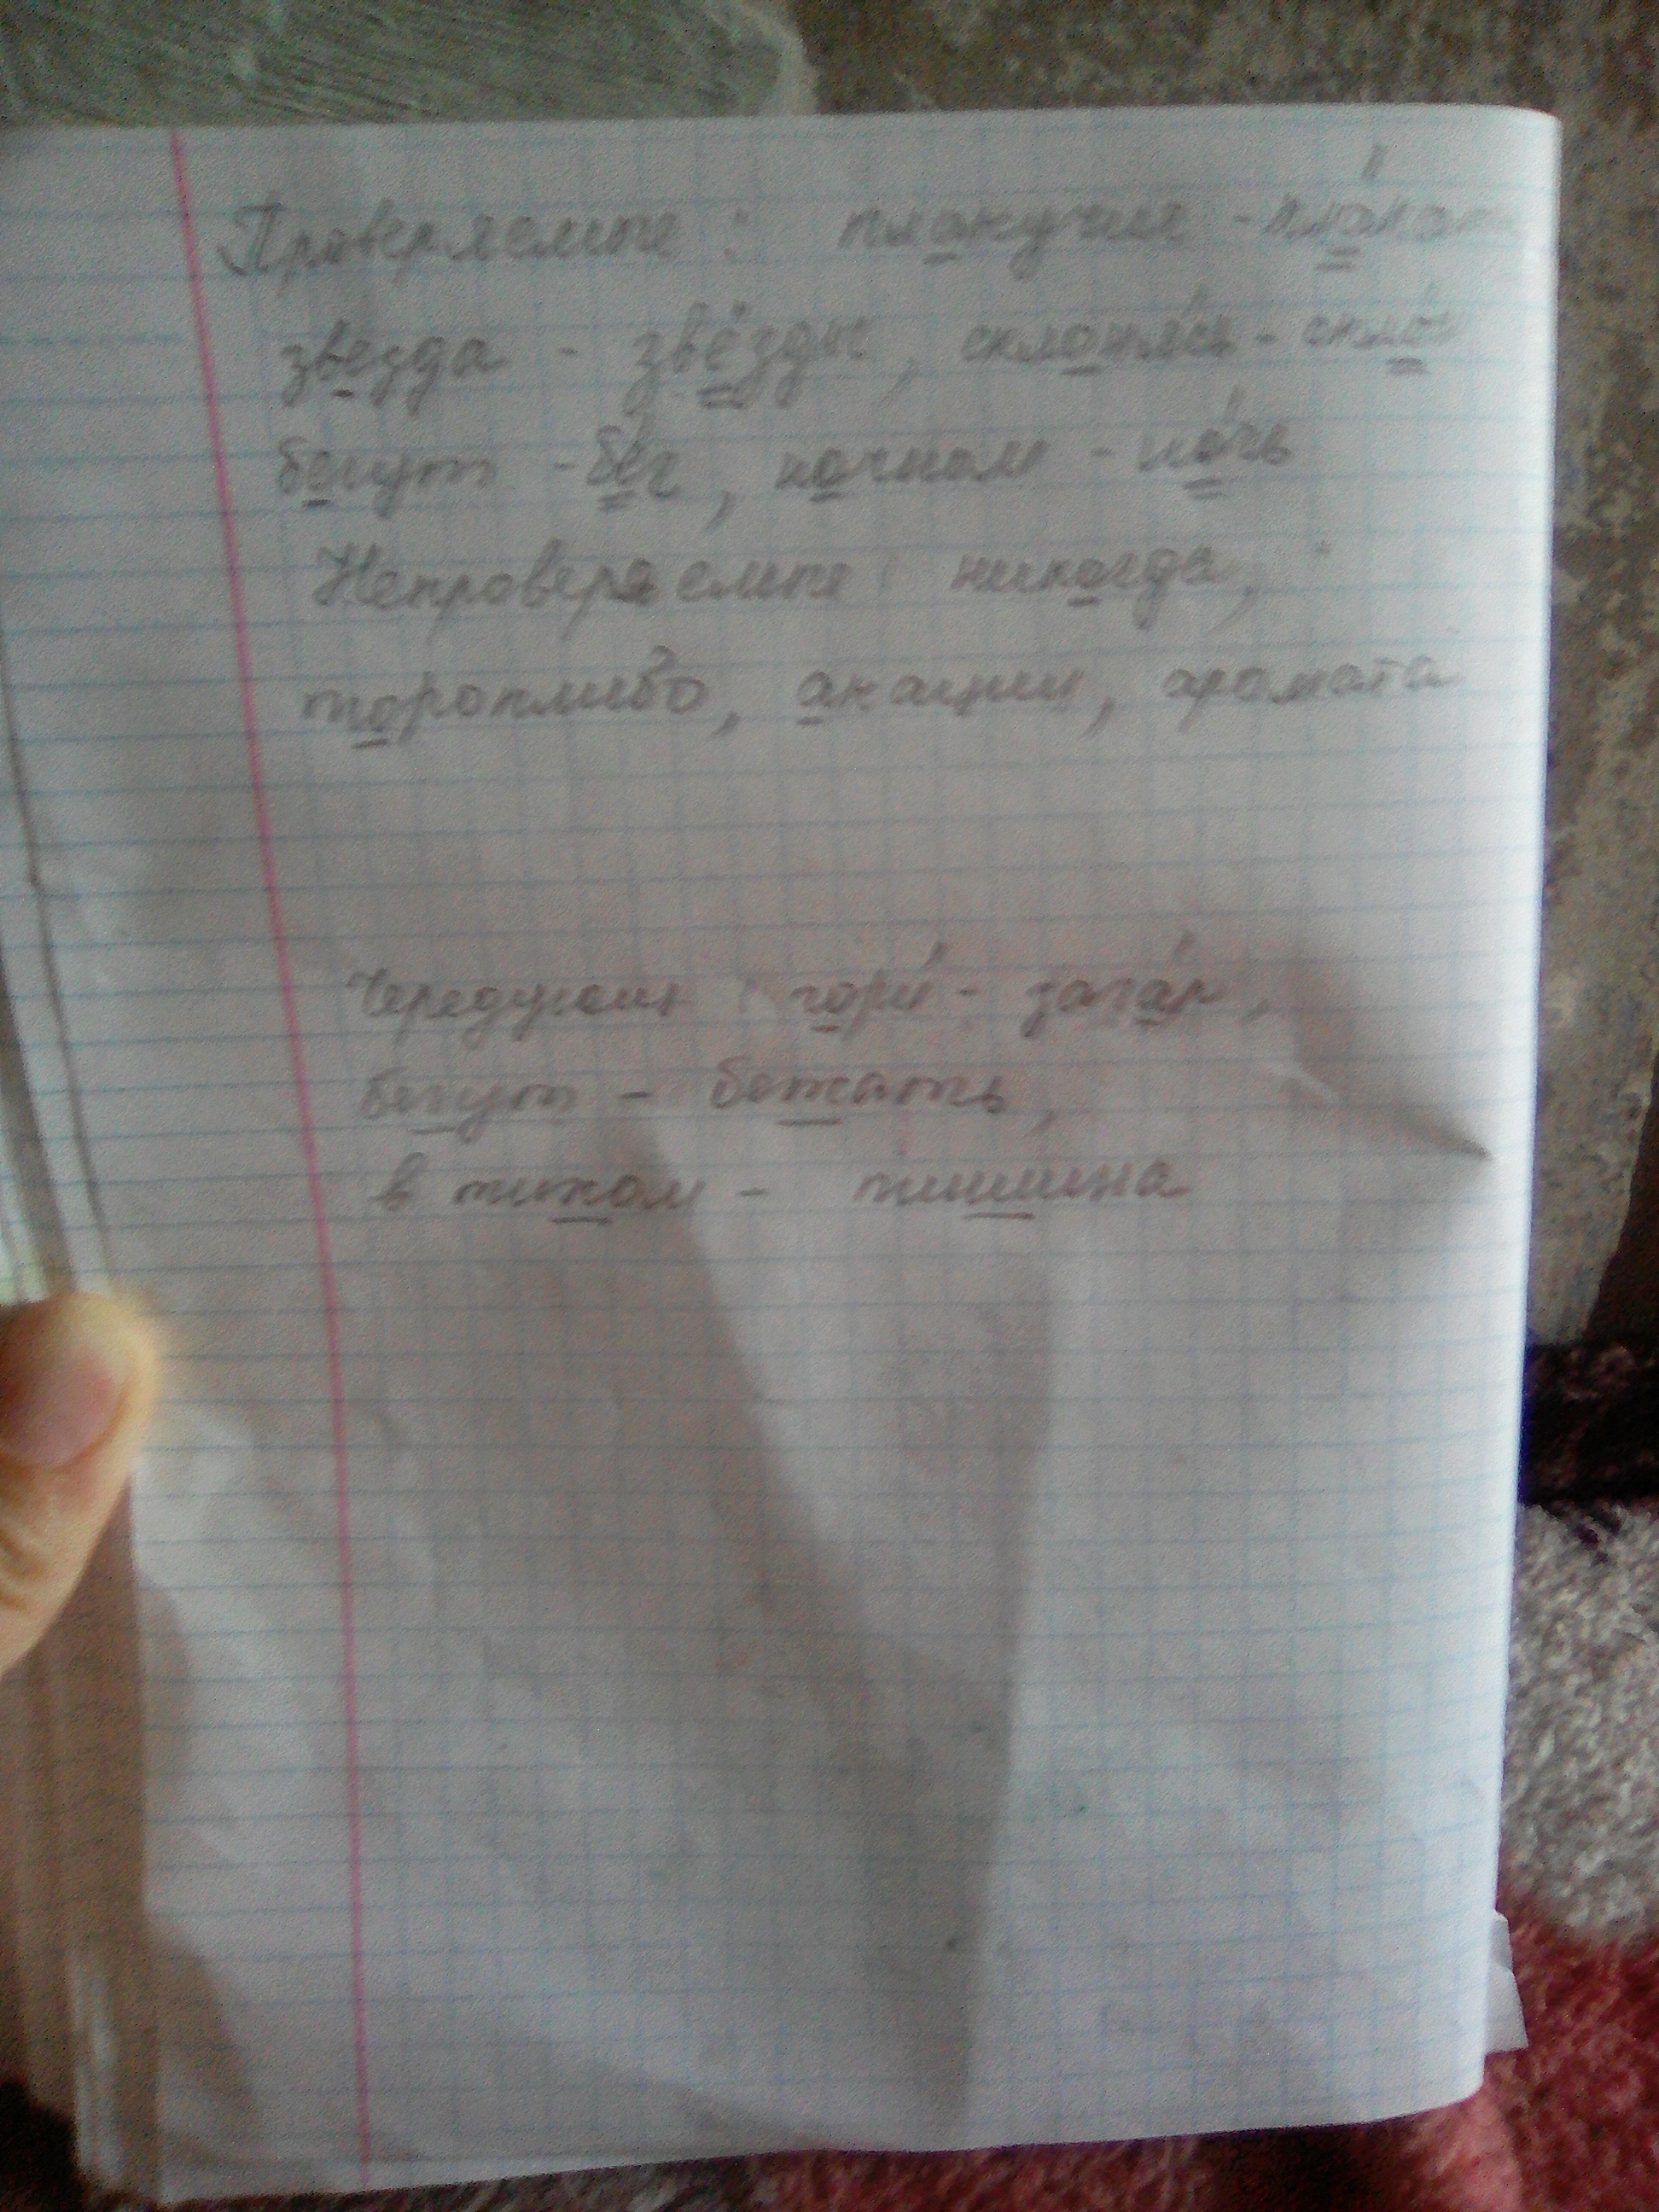 Проверяемые: плакучие - плакать
звезда - звёзды, склонясь - скло́н
бегут - бе́г, ночном - но́чь
Непроверяемые: никогда,
торопливо, акации, аромата
Чередующ: гори́ - зага́р,
бегут - бежать,
в тихом - тишина